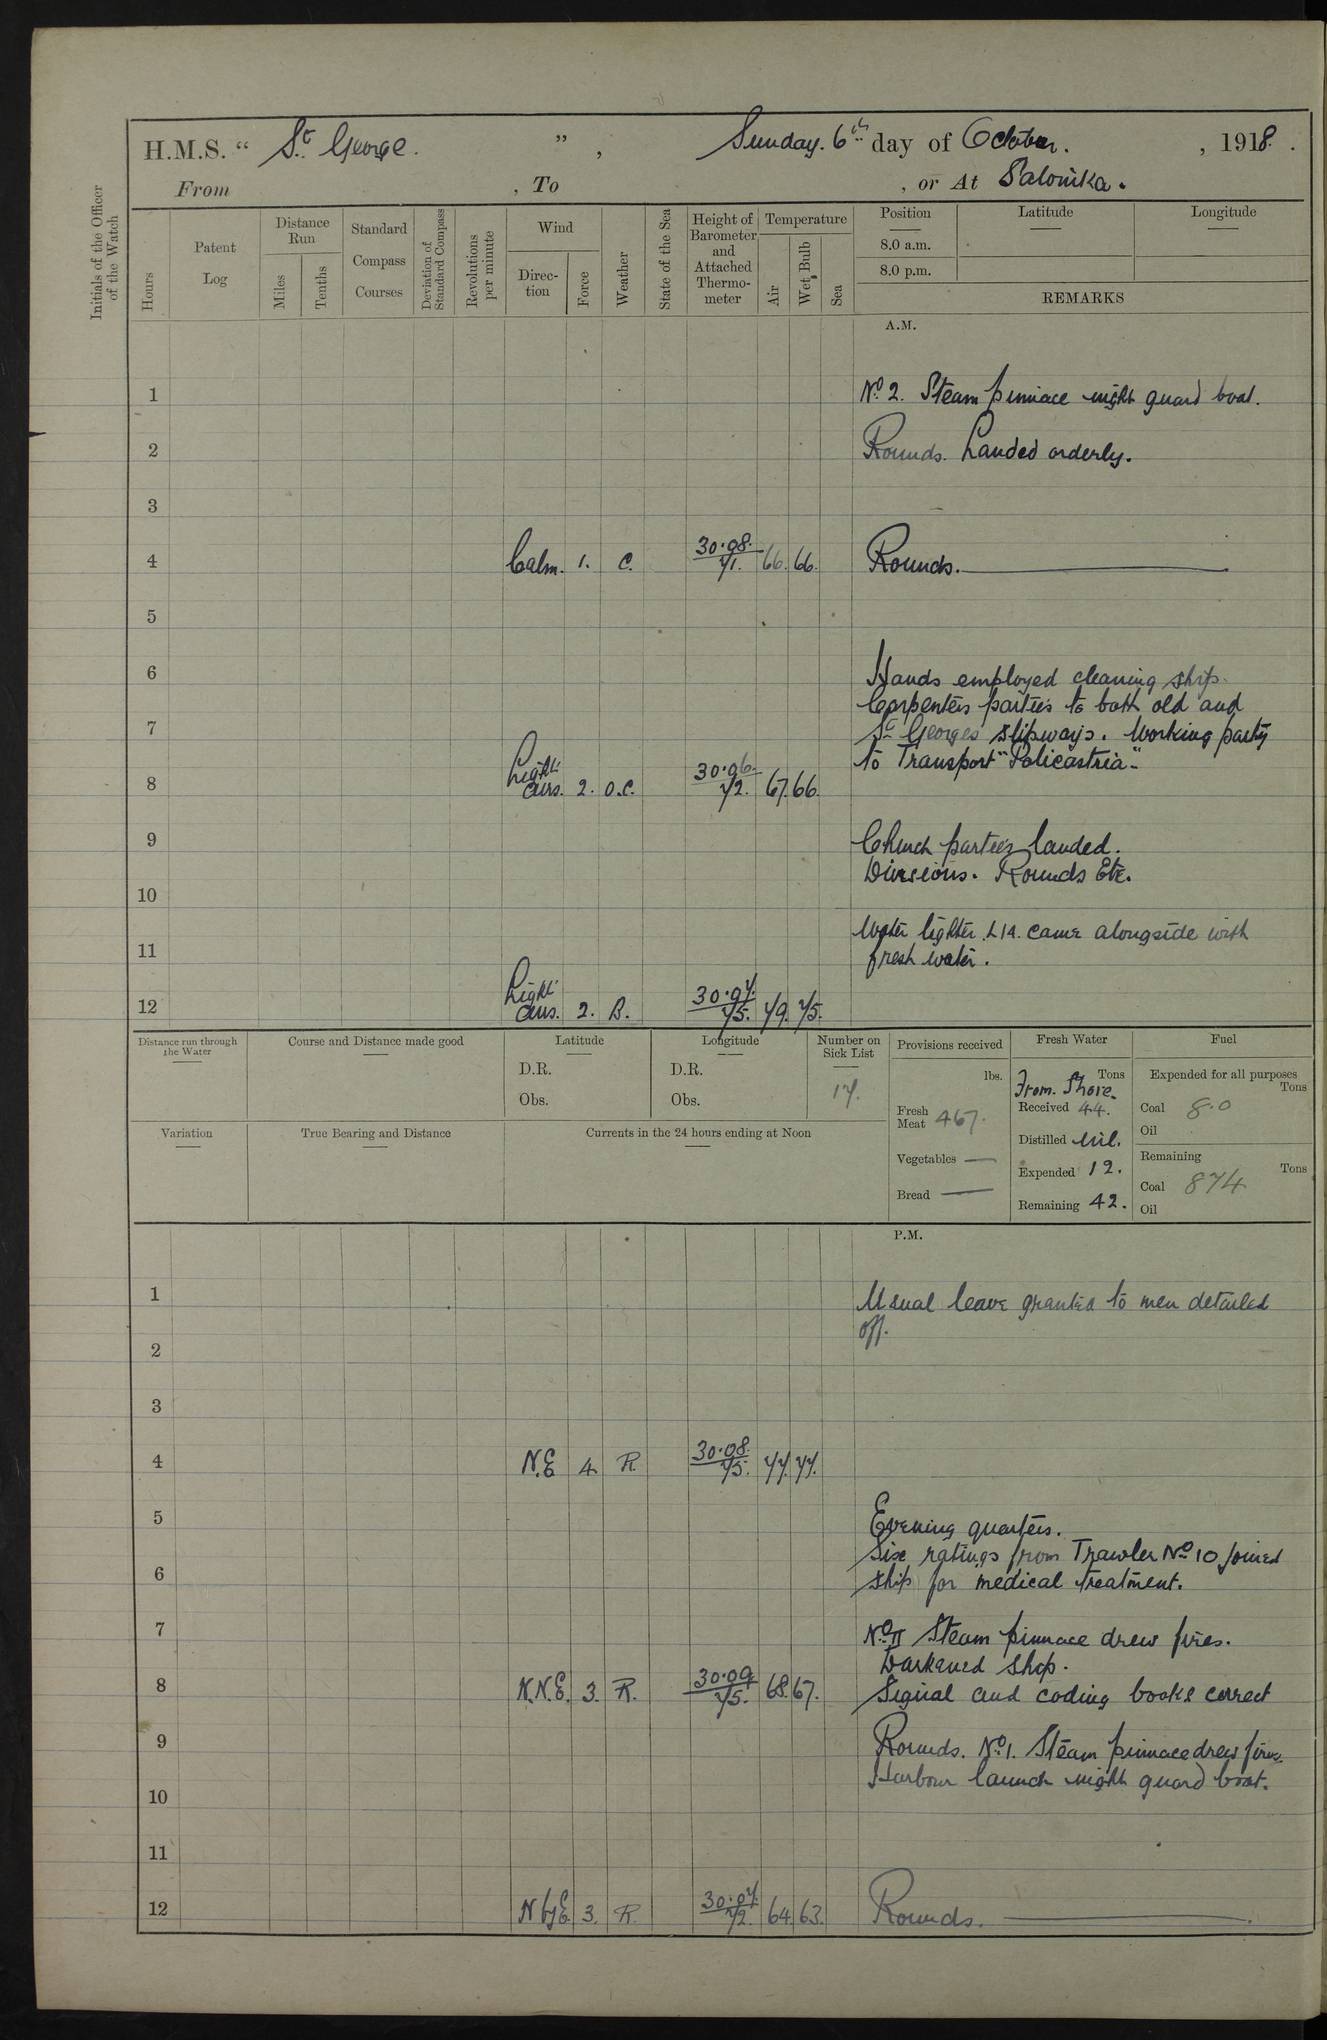 H.M.S. " St. George. ", Sunday. 6th day of October. , 1918.
From , To , or At Salonika.
Initials of the Officer of the Watch
Hours
Patent Log
Distance Run
Miles
Tenths
Standard Compass Courses
Deviation of Standard Compass
Revolutions per minute
Wind
Direc-tion
Force
Weather
State of the Sea
Height of Barometer and Attached Thermo-meter
Temperature
Air
Wet Bulb
Sea
Position Latitude Longitude
8.0 a.m.
8.0 p.m.
REMARKS
A.M.
1 No. 2. Steam pinnace night guard boat.
2 Rounds. Landed orderly.
3
4 Calm. 1. C. 30.08. 71. 66. 66. Rounds.
5
6 Hands employed cleaning ship.
Carpenters parties to both old and
7 St. Georges slipways. Working party
to Transport "Policastria"
8 Light airs. 2. O.C. 30.06. 72. 67. 66.
9 Church parties landed.
Divisions. Rounds Etc.
10
Water lighter L14. came alongside with
11 fresh water.
12 Light airs. 2. B. 30.07. 75. 79. 75.
Distance run through the Water
Course and Distance made good
Latitude
D.R.
Obs.
Longitude
D.R.
Obs.
Number on Sick List
17.
Provisions received
lbs.
Fresh Meat 467.
Vegetables —
Bread —
Fresh Water
Tons
From. Shore.
Received 44.
Distilled Nil.
Expended 12.
Remaining 42.
Fuel
Expended for all purposes
Tons
Coal 8.0
Oil
Remaining
Tons
Coal 874
Oil
Variation
True Bearing and Distance
Currents in the 24 hours ending at Noon
P.M.
1 Usual leave granted to men detailed
off.
2
3
4 N.E 4. R. 30.08. 75. 77. 77.
5 Evening quarters.
Six ratings from Trawler No. 10 joined
6 ship for medical treatment.
7 No. II Steam pinnace drew fires.
Darkened ship.
8 N.N.E. 3. R. 30.09. 75. 68. 67. Signal and coding books correct
9 Rounds. No. 1. Steam pinnace drew fires.
Harbour launch night guard boat.
10
11
12 N by E. 3. R. 30.07. 72. 64. 63. Rounds.